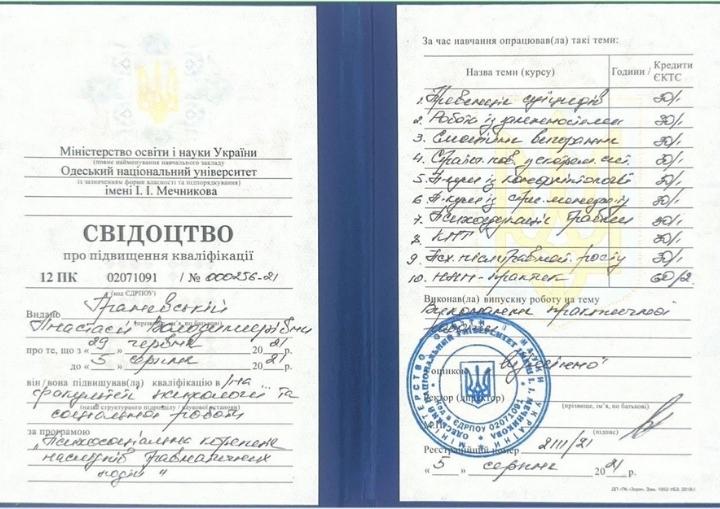 Міністерство освіти і науки України
(повне найменування навчального закладу)
Одеський національний університет
(із зазначенням форми власності та підпорядкування)
імені І. І. Мечникова
СВІДОЦТВО
про підвищення кваліфікації
12 ПК 02071091 / № 000256-21
(код ЄДРПОУ)
Видано
Анастасії Володимирівни
про те, що з « 29 » червня 2021
до « 5 » серпня 2021
він/вона підвищував(ла) кваліфікацію в /на
факультеті психології та
соціальної роботи
за програмою
„Психосоціальна корекція
наслідків травматичних
подій"
За час навчання опрацював(ла) такі теми:
Назва теми (курсу) Години / Кредити ЄКТС
1. Превенція суїцидів 30/1
2. Робота із залежностями 30/1
3. Емоційне вигорання 30/1
4. 30/1
5. із конфліктології 30/1
6. із 30/1
7. Психосоматика травми 30/1
8. КПТ 30/1
9. Псих. післятравмат. росту 30/1
10. НЛП-практик 60/2
Виконав(ла) випускну роботу на тему
Виконання практичної
роботи
з оцінкою
Ректор (директор)
(прізвище, ім'я, по батькові)
(підпис)
Реєстраційний номер 2111/21
« 5 » серпня 2021
МІНІСТЕРСТВО ОСВІТИ І НАУКИ УКРАЇНИ
ОДЕСЬКИЙ НАЦІОНАЛЬНИЙ УНІВЕРСИТЕТ ІМЕНІ І. І. МЕЧНИКОВА
ЄДРПОУ 02071091